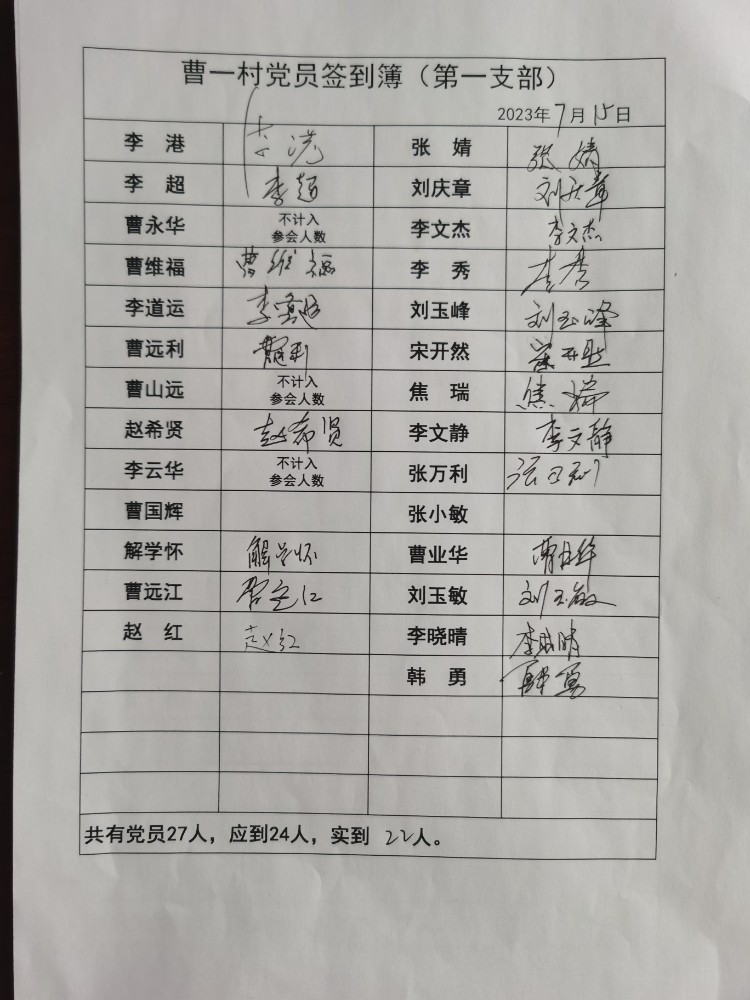 曹一村党员签到簿（第一支部）
2023年7月15日
李 港 李港 张 婧 张婧
李 超 李超 刘庆章 刘庆章
曹永华 不计入 李文杰 李文杰
参会人数
曹维福 曹维福 李 秀 李秀
李道运 李道运 刘玉峰 刘玉峰
曹远利 曹远利 宋开然 宋开然
曹山远 不计入 焦 瑞 焦瑞
参会人数
赵希贤 赵希贤 李文静 李文静
李云华 不计入 张万利 张万利
参会人数
曹国辉 张小敏
解学怀 解学怀 曹业华 曹业华
曹远江 曹远江 刘玉敏 刘玉敏
赵 红 赵红 李晓晴 李晓晴
韩 勇 韩勇
共有党员27人，应到24人，实到 22人。